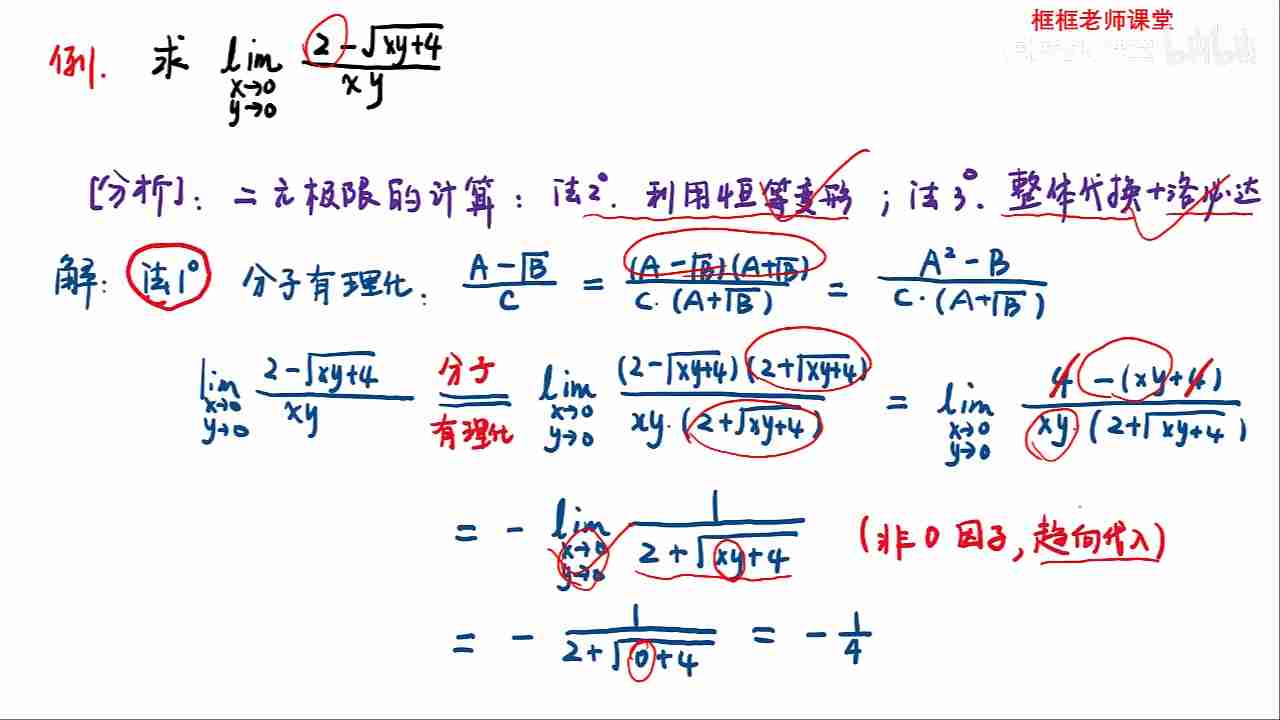 框框老师课堂
bilibili
例. 求 lim x→0 y→0 (2-√(xy+4))/(xy)
[分析]: 二元极限的计算: 法2°. 利用恒等变形; 法3°. 整体代换+洛必达
解: 法1° 分子有理化: (A-√B)/C = ((A-√B)(A+√B))/(C·(A+√B)) = (A²-B)/(C·(A+√B))
lim x→0 y→0 (2-√(xy+4))/(xy) 分子有理化 = lim x→0 y→0 ((2-√(xy+4))(2+√(xy+4)))/(xy·(2+√(xy+4))) = lim x→0 y→0 (4-(xy+4))/(xy·(2+√(xy+4)))
= - lim x→0 y→0 1/(2+√(xy+4)) (非0因子, 趋向代入)
= - 1/(2+√(0+4)) = - 1/4